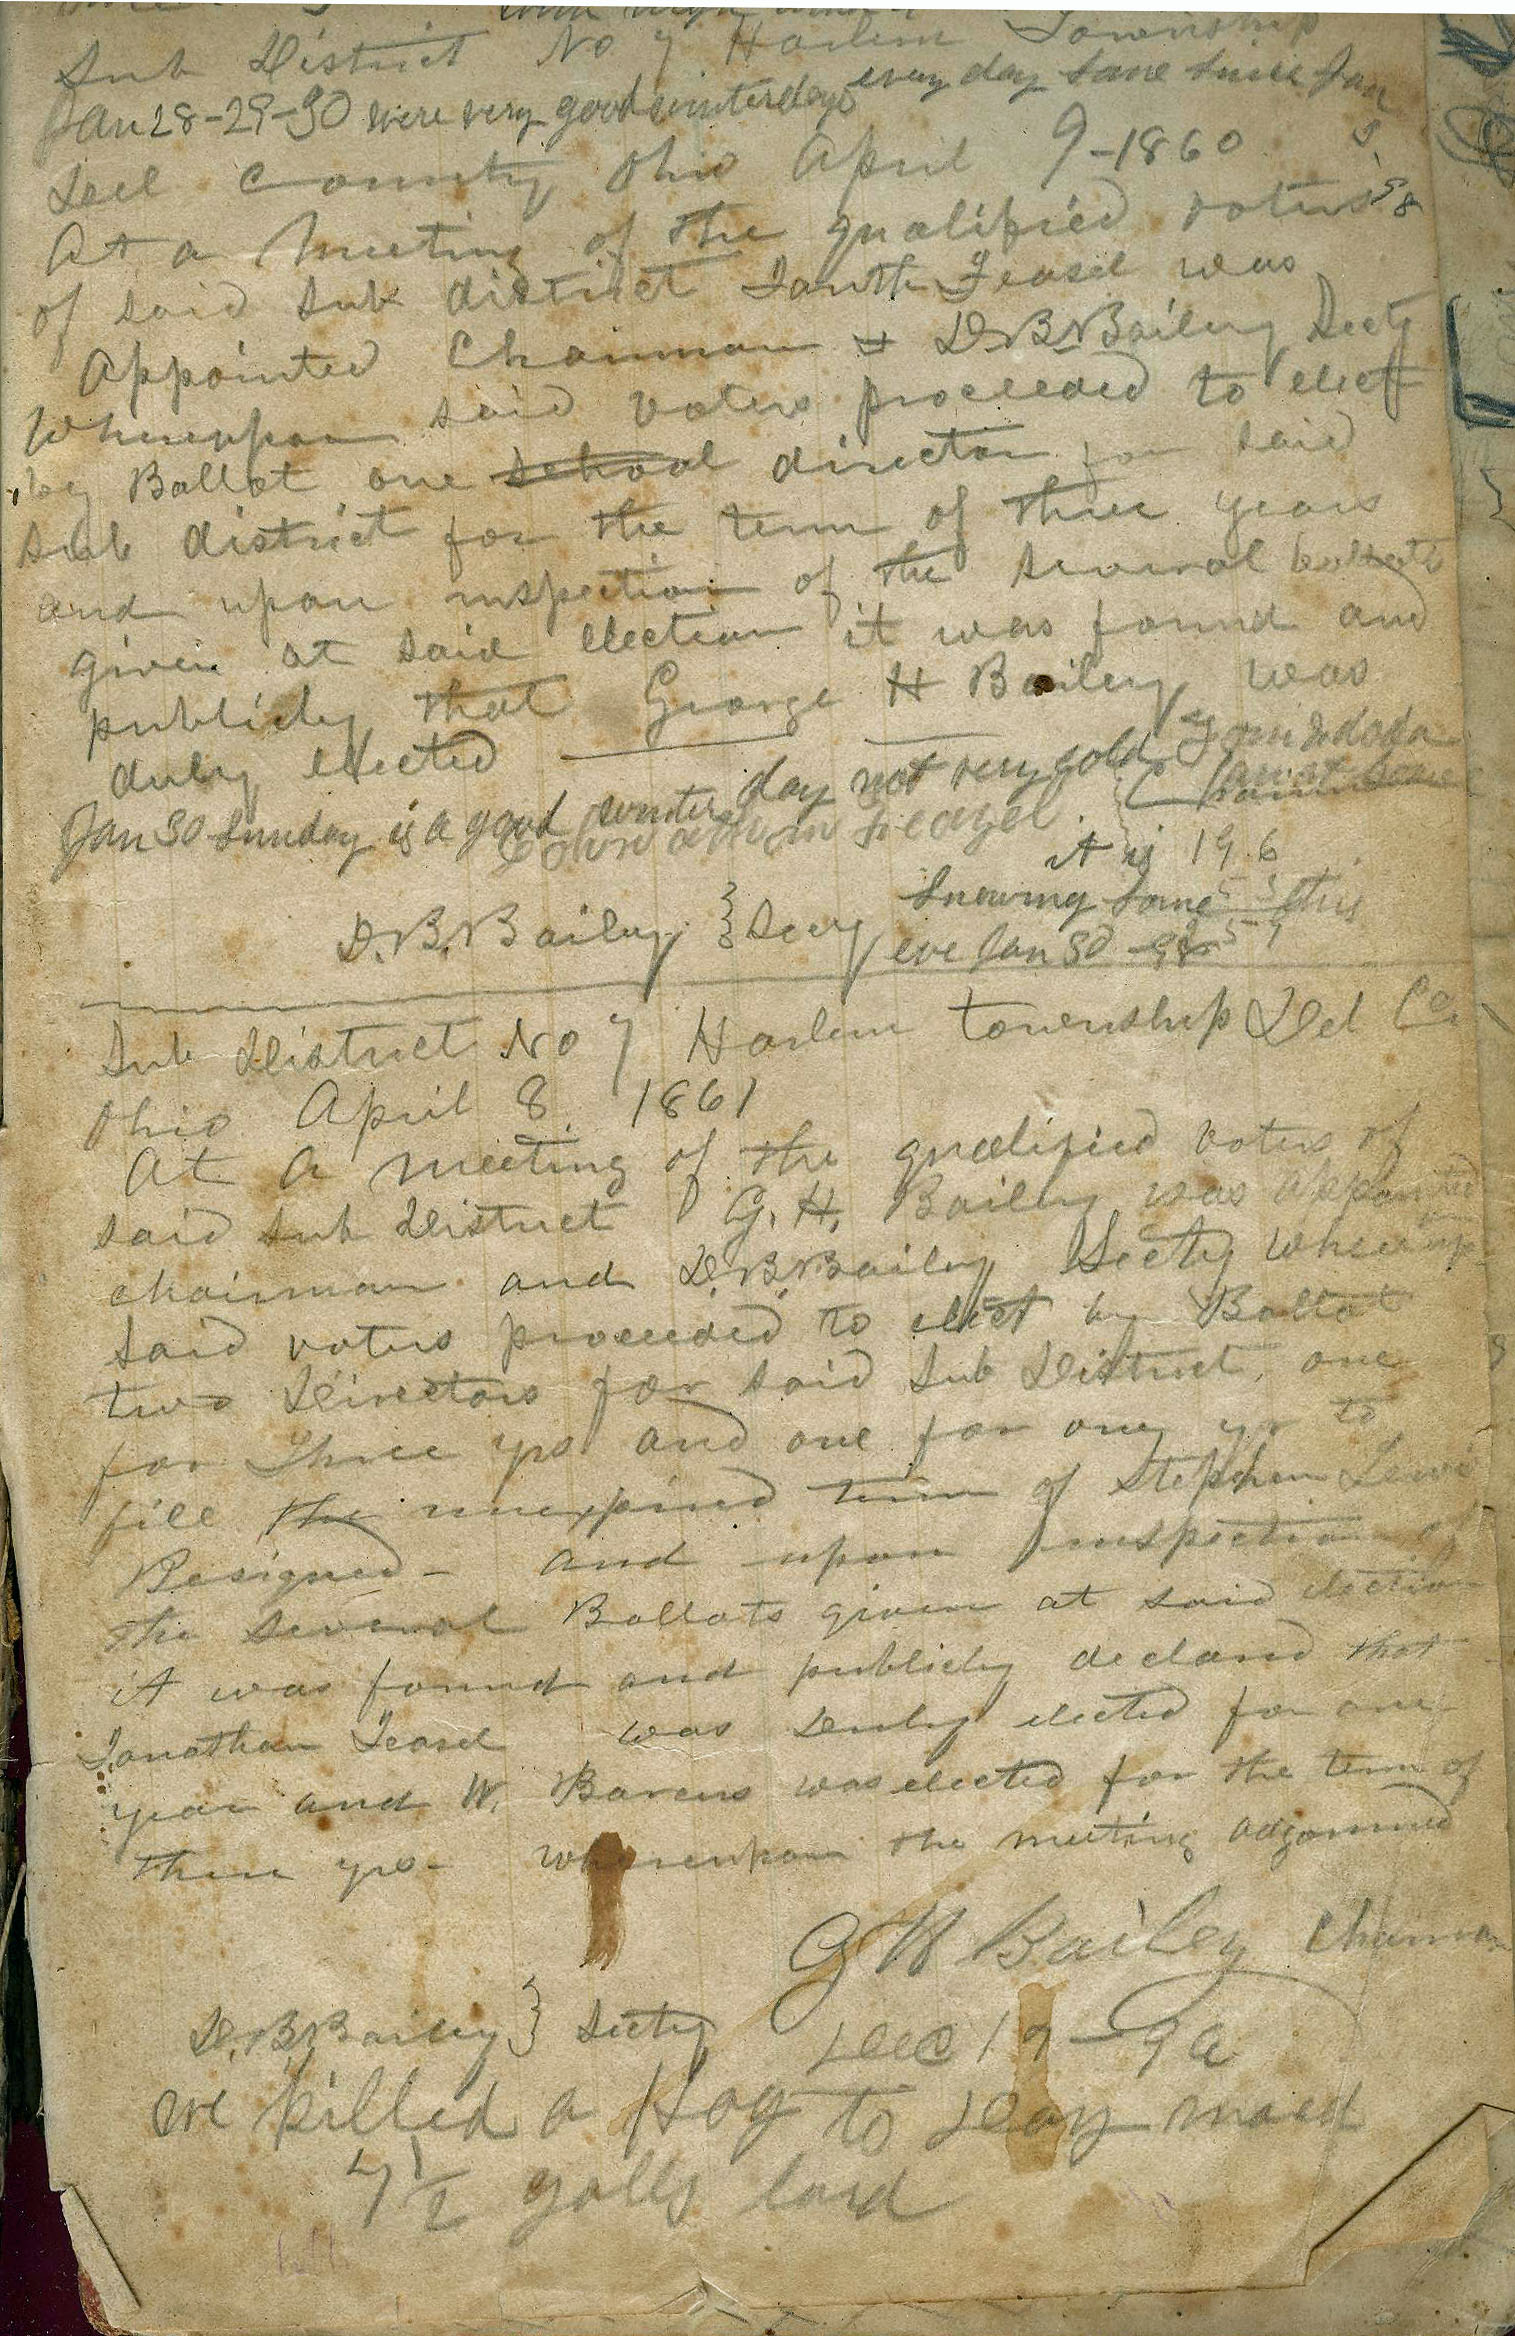 Sub District No 7 Harlem Township
Jan 28-29-30 were very good winter days every day same since Jan
Del County Ohio April 9-1860
At a Meeting of the qualified voters
of said Sub district Jonth Feasel was
Appointed Chairman & D.B. Bailey Secty
Whereupon said voters proceeded to elect
by Ballot one school director for said
Sub district for the term of three years
and upon inspection of the several ballots
given at said election it was found and
publicly that George H Bailey was
duly elected
Jan 30 Sunday is a good winter day not very cold
it is 19.6
D.B. Bailey } Secy
Snowing some this
eve Jan 30 - 98
Sub District No 7 Harlem township Del Co.
Ohio April 8 1861
At a meeting of the qualified voters of
said Sub District G. H. Bailey was appointed
chairman and D.B. Bailey Secty Whereup
said voters proceeded to elect by Ballot
two Directors for said Sub District, one
for Three yrs and one for one yr to
fill the unexpired term of Stephen Lewis
Resigned - and upon inspection of
the several Ballots given at said election
it was found and publicly declard that
Jonathan Feasel was Duly elected for one
year and W. Barcus was elected for the term of
three yrs - whereupon the meeting adjourned
G H Bailey Chairman
D.B. Bailey } Secty
Dec 19 - 92
we killed a Hog to Day maed
7 1/2 galls lard